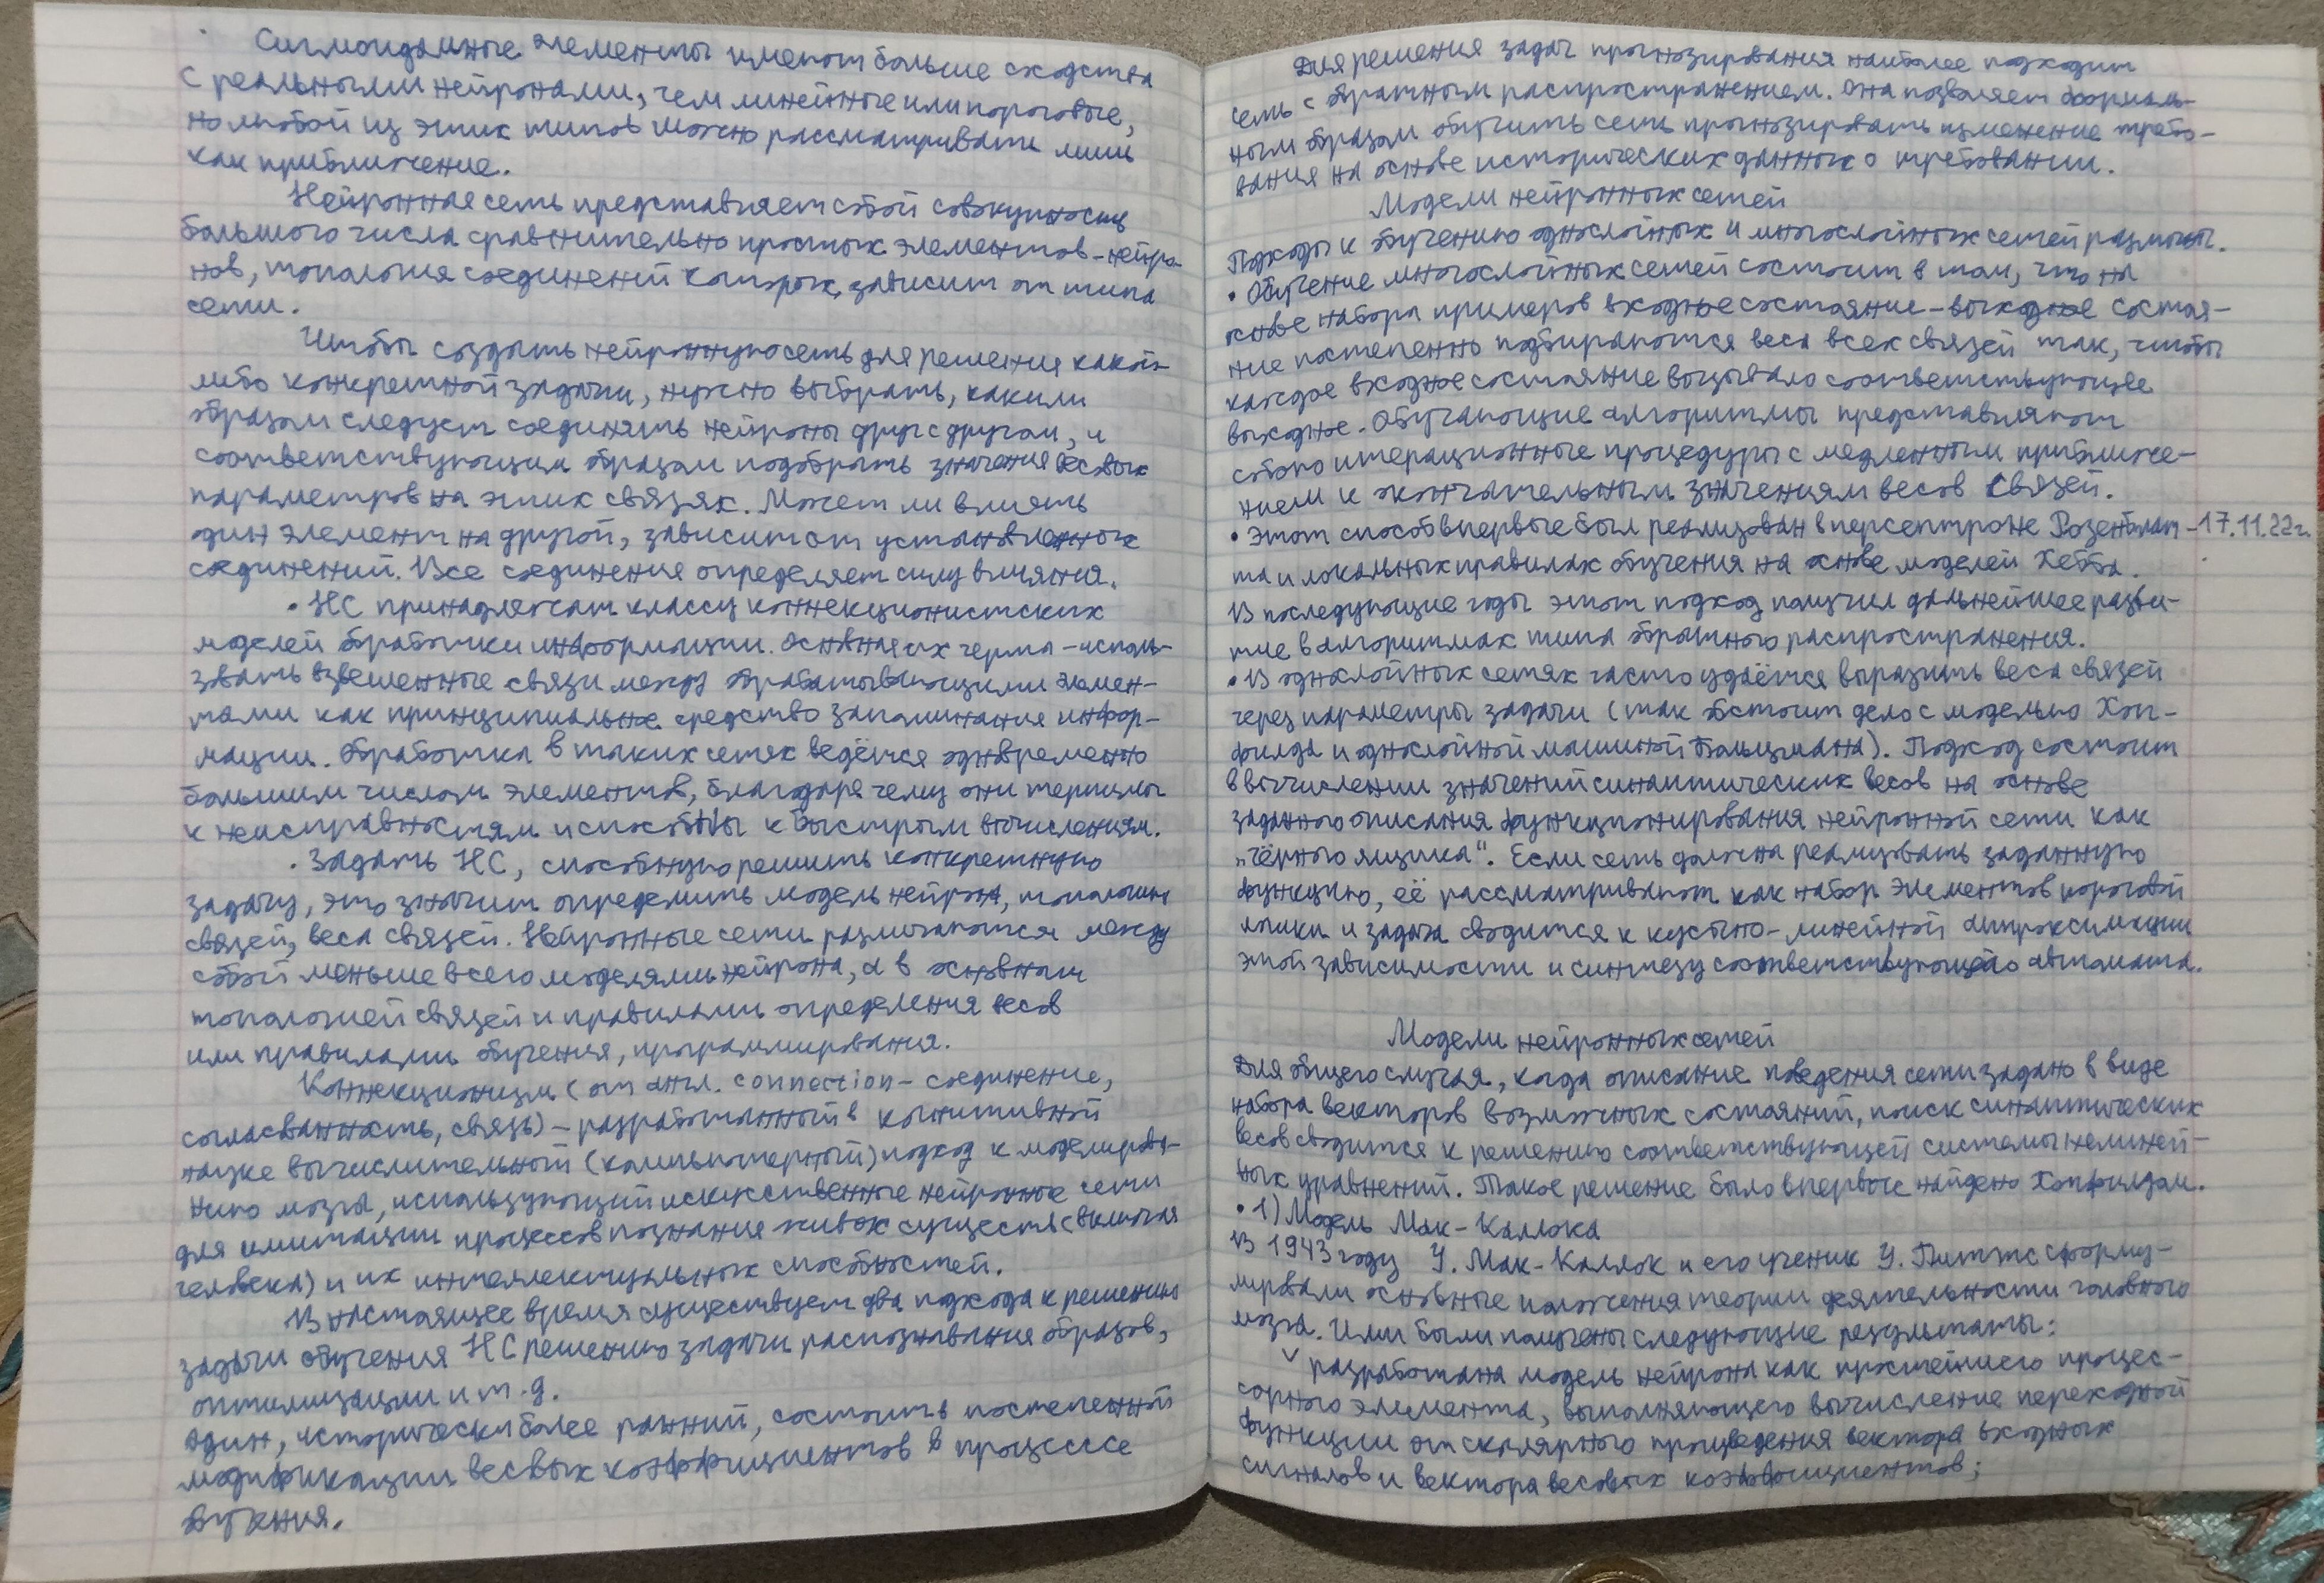 Сигмоидальные элементы имеют больше сходства
с реальными нейронами, чем линейные или пороговые,
но любой из этих типов можно рассматривать лишь
как приближение.
Нейронная сеть представляет собой совокупность
большого числа сравнительно простых элементов - нейро-
нов, топология соединений которых, зависит от типа
сети.
Чтобы создать нейронную сеть для решения какой-
либо конкретной задачи, нужно выбрать, какими
образом следует соединять нейроны друг с другом, и
соответствующим образом подобрать значения весовых
параметров на этих связях. Может ли влиять
один элемент на другой, зависит от установленных
соединений. Все соединения определяет силу влияния.
• НС принадлежат классу коннекционистских
моделей обработки информации. Основная их черта - исполь-
зовать взвешенные связи между обрабатывающими элемен-
тами как принципиальное средство запоминания инфор-
мации. Обработка в таких сетях ведётся одновременно
большим числом элементов, благодаря чему они терпимы
к неисправностям и способны к быстрым вычислениям.
• Задать НС, способную решить конкретную
задачу, это значит определить модель нейрона, топологию
связей, веса связей. Нейронные сети различаются между
собой меньше всего моделями нейрона, а в основном
топологией связей и правилами определения весов
или правилами обучения, программирования.
Коннекционизм (от англ. connection - соединение,
согласованность, связь) - разработанный в когнитивной
науке вычислительный (компьютерный) подход к моделирова-
нию мозга, использующий искусственные нейронные сети
для имитации процессов познания живых существ (включая
человека) и их интеллектуальных способностей.
В настоящее время существует два подхода к решению
задачи обучения НС решению задачи распознавания образов,
оптимизации и т.д.
Один, исторически более ранний, состоит в постепенной
модификации весовых коэффициентов в процессе
обучения.
Для решения задач прогнозирования наиболее подходит
сеть с обратным распространением. Она позволяет формаль-
ным образом обучить сеть прогнозировать изменение требо-
вания на основе исторических данных о требовании.
Модели нейронных сетей
Подходы к обучению однослойных и многослойных сетей различны.
• Обучение многослойных сетей состоит в том, что на
основе набора примеров входное состояние - выходное состоя-
ние постепенно подбираются веса всех связей так, чтобы
каждое входное состояние вызывало соответствующее
выходное. Обучающие алгоритмы представляют
собою итерационные процедуры с медленным приближе-
нием к окончательным значениям весов связей.
• Этот способ впервые был реализован в персептроне Розенблат- 17.11.22г.
та и локальных правилах обучения на основе моделей Хебба.
В последующие годы этот подход получил дальнейшее разви-
тие в алгоритмах типа обратного распространения.
• В однослойных сетях часто удаётся выразить веса связей
через параметры задачи (так обстоит дело с моделью Хоп-
филда и однослойной машиной Больцмана). Подход состоит
в вычислении значений синаптических весов на основе
заданного описания функционирования нейронной сети как
„чёрного ящика“. Если сеть должна реализовать заданную
функцию, её рассматривают как набор элементов пороговой
логики и задача сводится к кусочно-линейной аппроксимации
этой зависимости и синтезу соответствующего автомата.
Модели нейронных сетей
Для общего случая, когда описание поведения сети задано в виде
набора векторов возможных состояний, поиск синаптических
весов сводится к решению соответствующей системы нелиней-
ных уравнений. Такое решение было впервые найдено Хопфилдом.
• 1) Модель Мак-Каллока
В 1943 году У. Мак-Каллок и его ученик У. Питтс сформу-
лировали основные положения теории деятельности головного
мозга. Ими были получены следующие результаты:
✓ разработана модель нейрона как простейшего процес-
сорного элемента, выполняющего вычисление переходной
функции от скалярного произведения вектора входных
сигналов и вектора весовых коэффициентов;